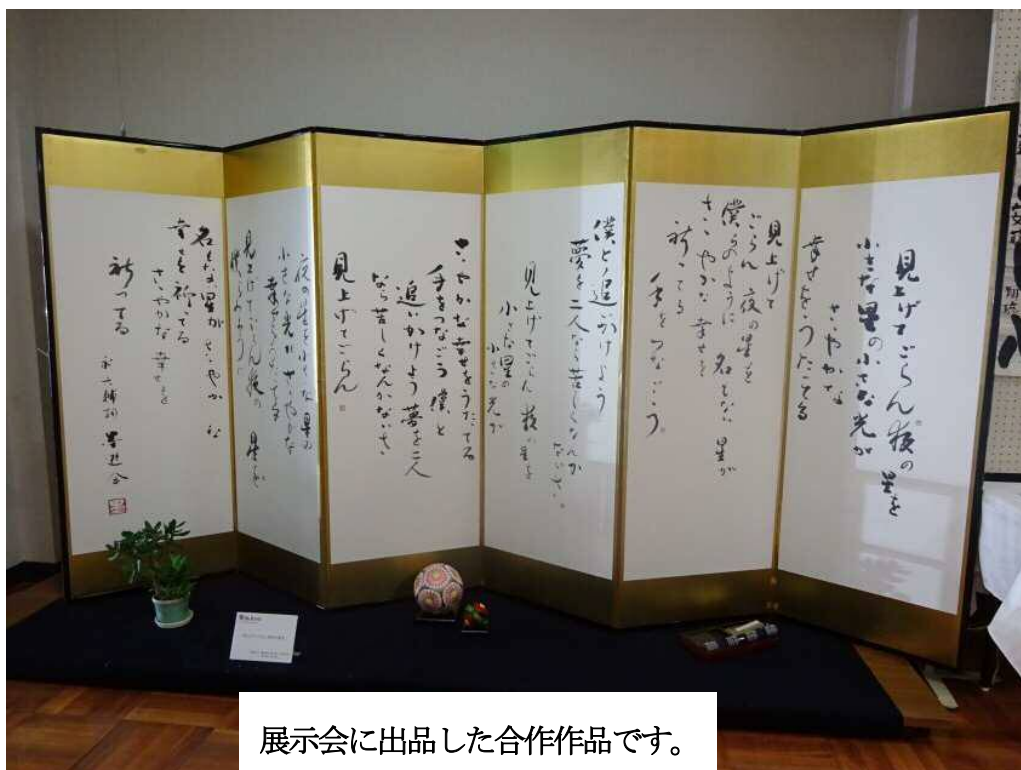 見上げてごらん夜の
星を
小さな星の小さな光が
ささやかな
幸せをうたってる
見上げて
ごらん 夜の星を
僕らのように 名もない 星が
ささやかな 幸せを
祈ってる
手を つなごう
僕と 追いかけよう
夢を 二人なら 苦しくなんか
ないさ
見上げてごらん 夜の 星を
小さな 星の
小さな 光が
ささやかな 幸せをうたってる
手をつなごう 僕と
追いかけよう 夢を 二人
なら 苦しくなんかないさ
見上げてごらん
夜の 星を 小さな 星の
小さな 光が ささやかな
幸せをうたってる
見上げてごらん 夜の 星を
僕らのように
名もない星が ささやかな
幸せを 祈ってる
ささやかな 幸せを
祈ってる
永六輔
展示会に出品した合作作品です。